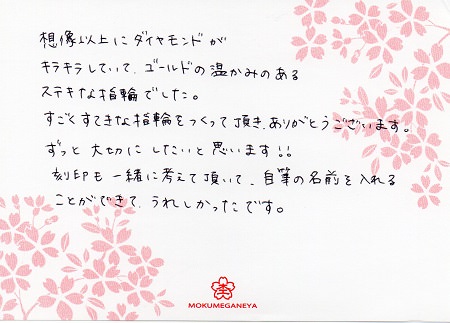 想像以上にダイヤモンドが
キラキラしていて、ゴールドの温かみのある
ステキな指輪でした。
すごくすてきな指輪をつくって頂き、ありがとうございます。
ずっと大切にしたいと思います!!
刻印も一緒に考えて頂いて、自筆の名前を入れる
ことができて、うれしかったです。
MOKUMEGANEYA